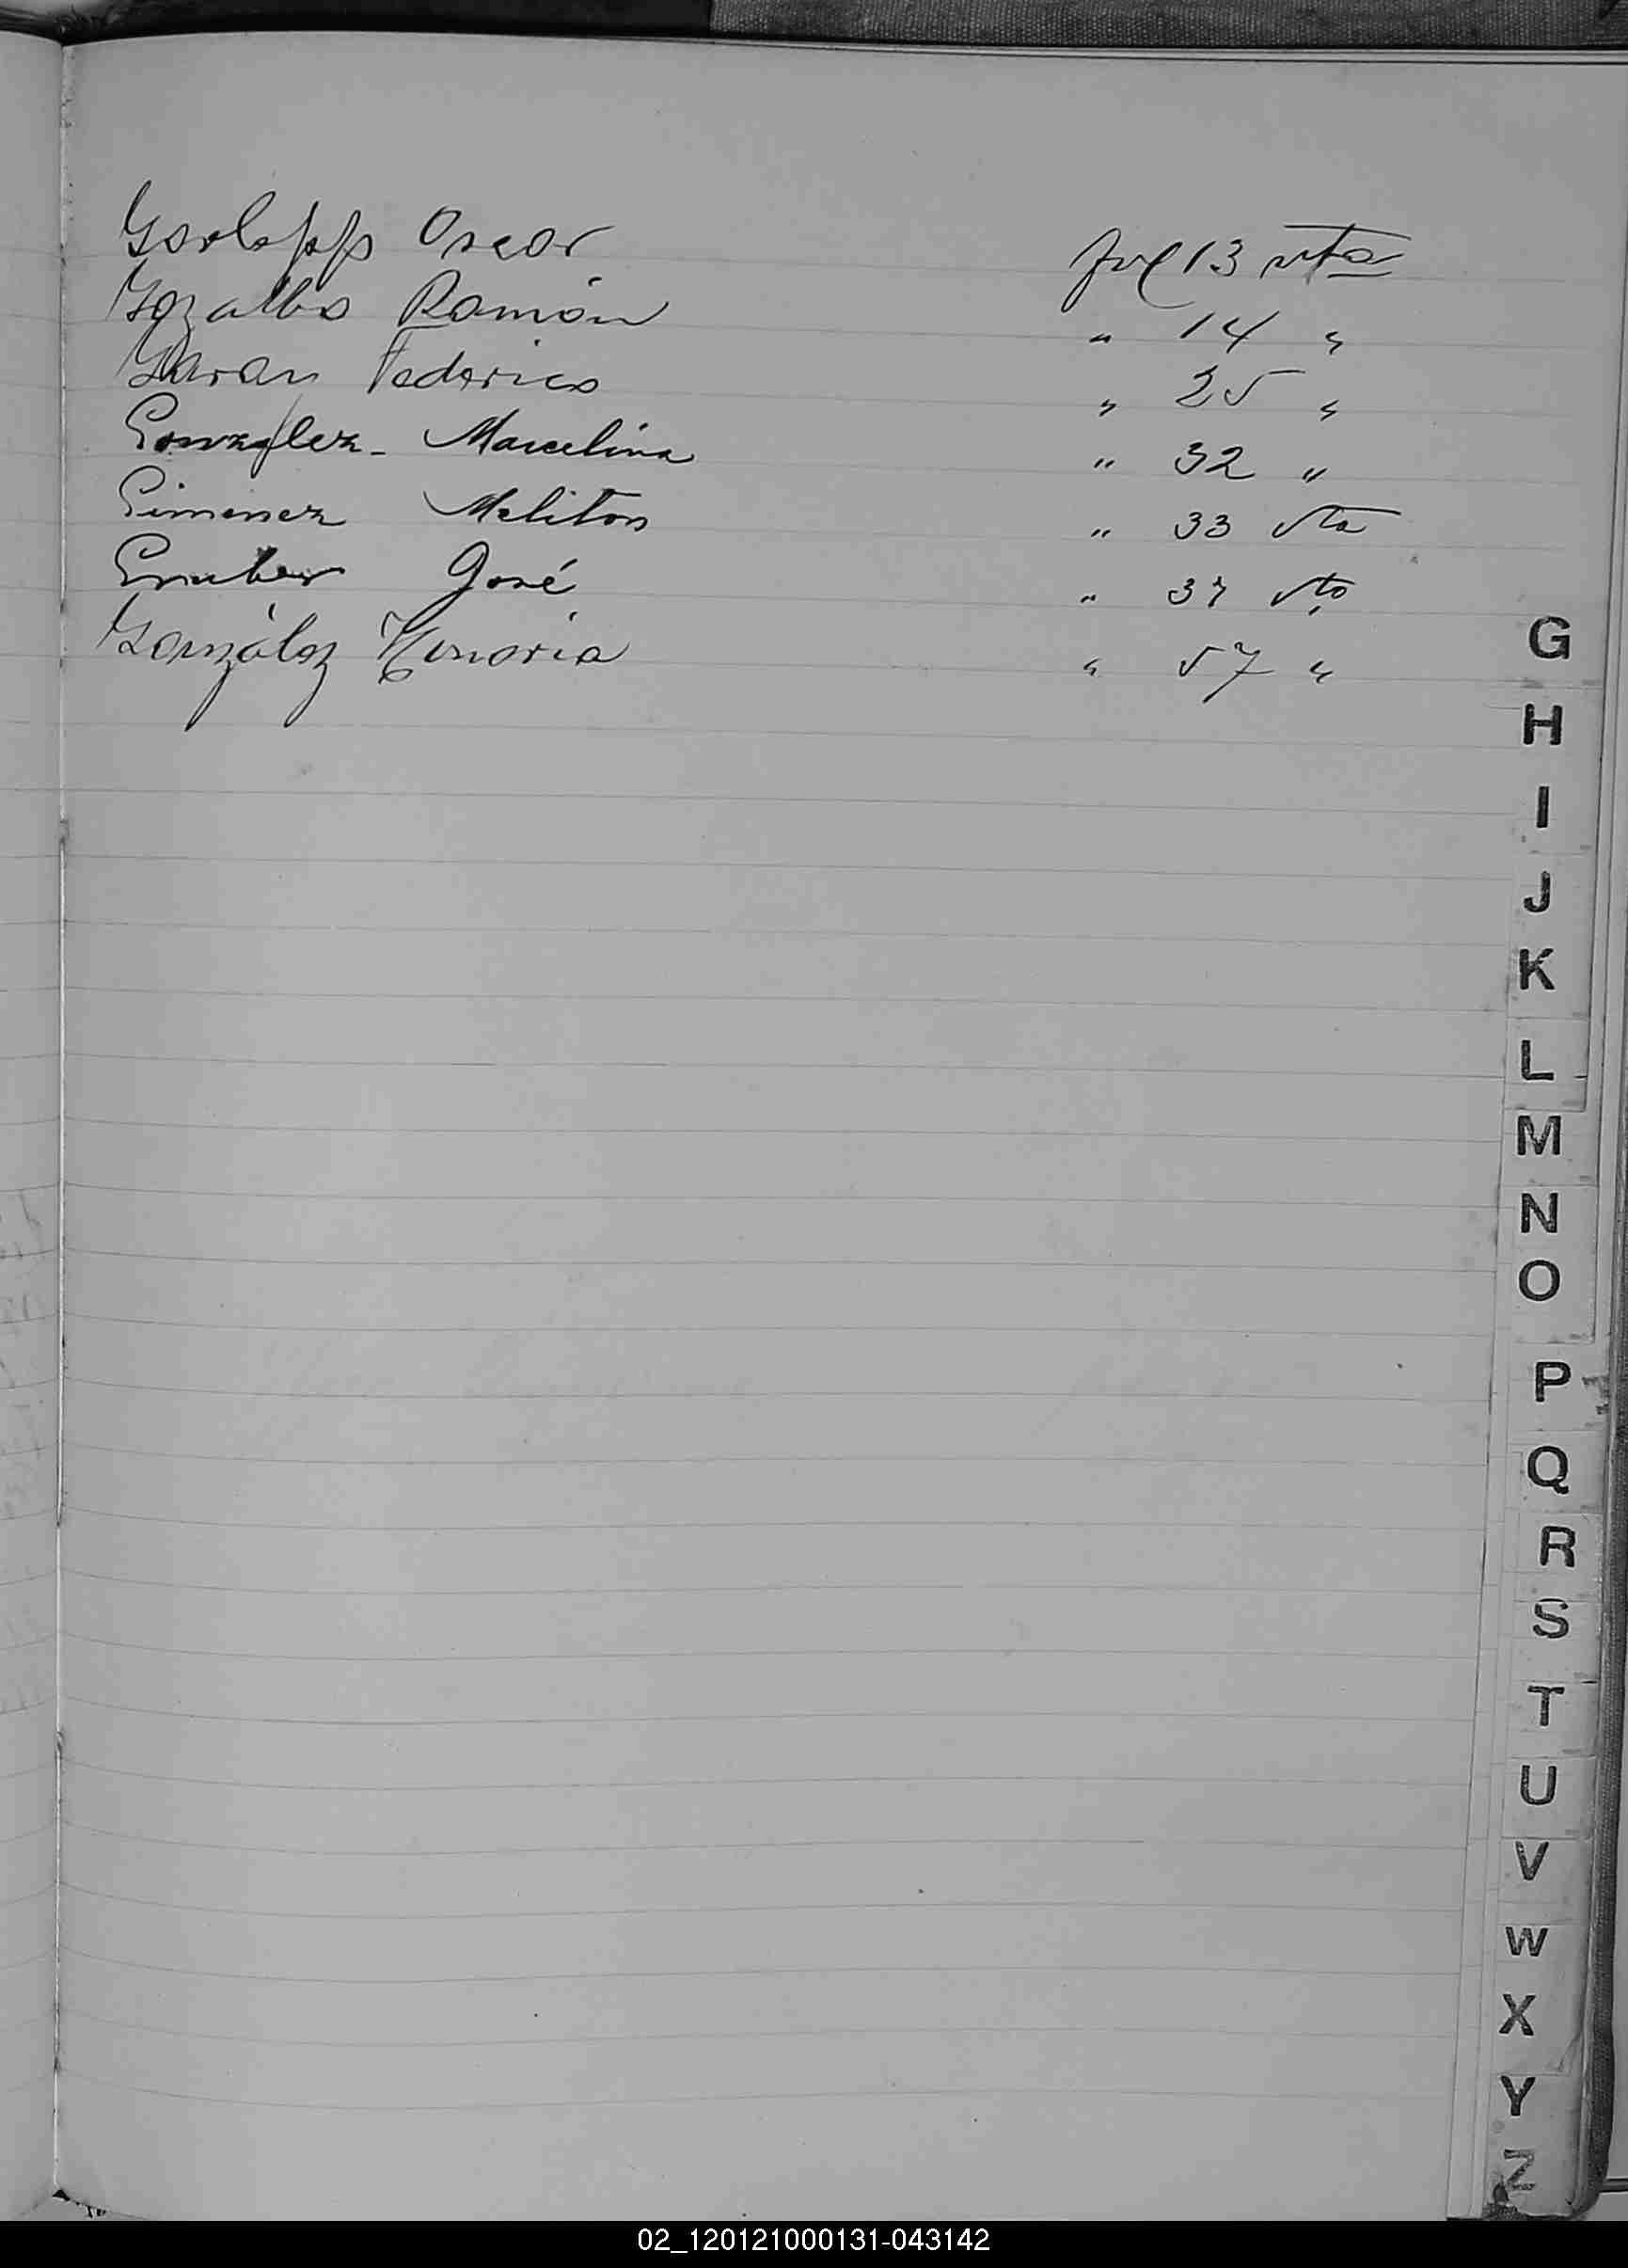 Gorlopp Oscar fol 13 vta
Gozalbo Ramón " 14 "
Garan Federico " 25 "
Gonzalez - Marcelina " 32 "
Gimenez Meliton " 33 vta
Gruber José " 37 vto
González Honoria " 57 "
G
H
I
J
K
L
M
N
O
P
Q
R
S
T
U
V
W
X
Y
Z
02_120121000131-043142